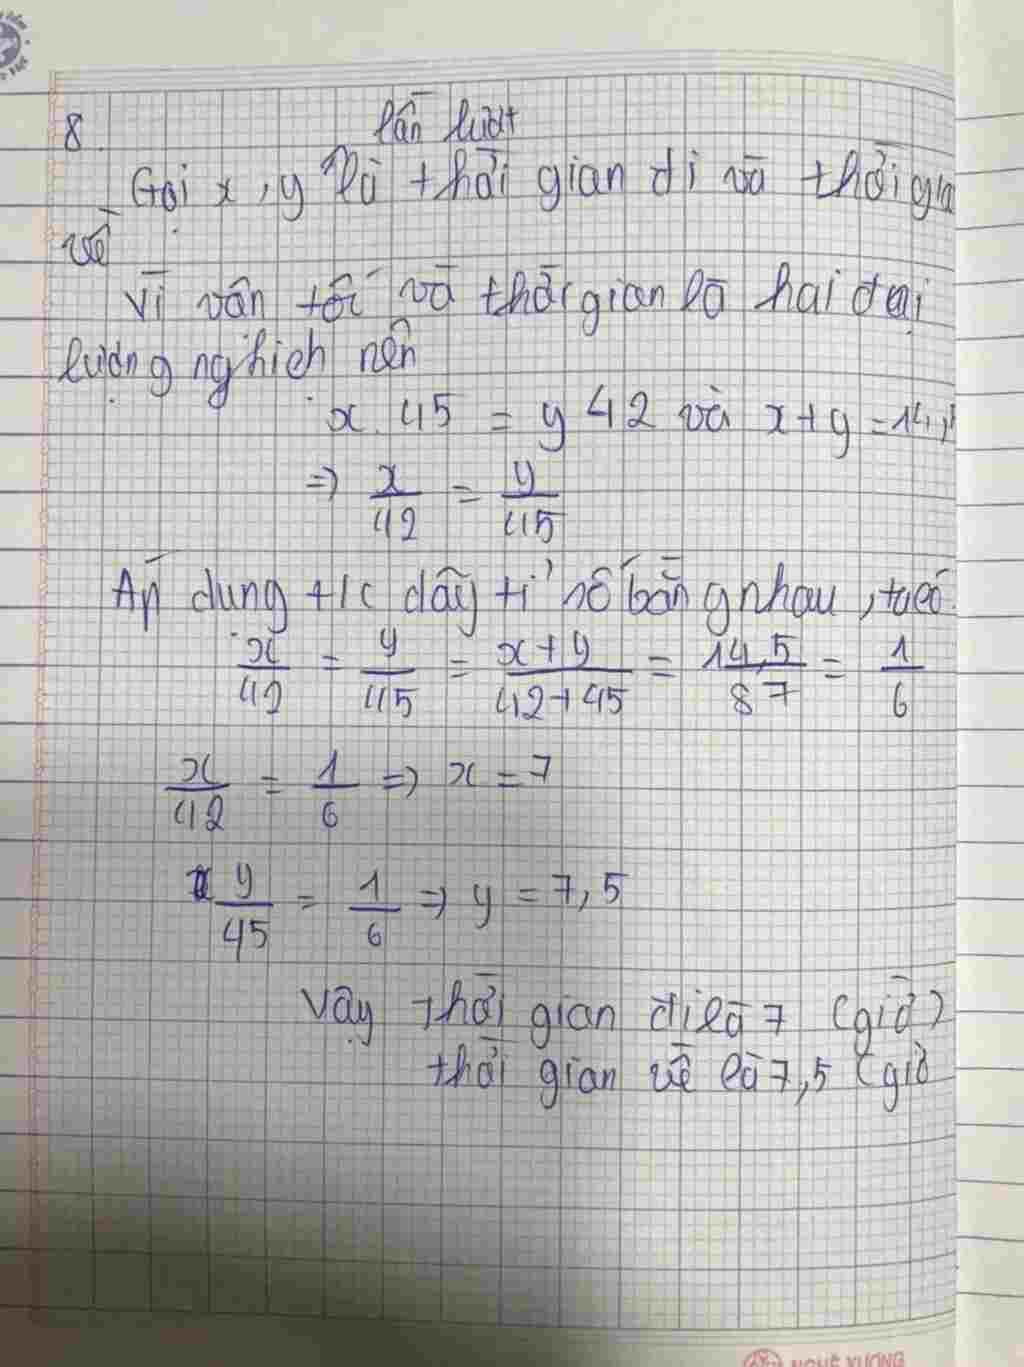 8.
lần lượt
Gọi x, y là thời gian đi và thời gia
về
Vì vận tốc và thời gian là hai đại
lượng nghịch nên
x. 45 = y 42 và x + y = 14,5
=> x/42 = y/45
Áp dụng t/c dãy tỉ số bằng nhau, ta có
x/42 = y/45 = x+y/42+45 = 14,5/87 = 1/6
x/42 = 1/6 => x = 7
y/45 = 1/6 => y = 7,5
Vậy thời gian đi là 7 (giờ)
thời gian về là 7,5 (giờ
NGHỆ XƯƠNG